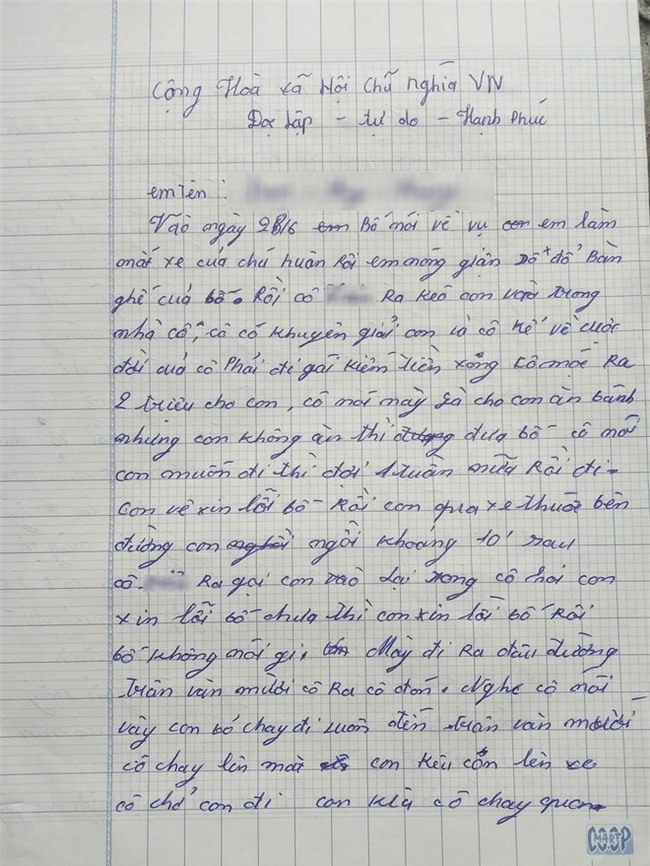 Cộng Hoà xã Hội chủ nghĩa VN
Độc Lập - tự do - Hạnh Phúc
em Tên :
Vào ngày 28/6 em Bố nói về vụ con em làm
mất xe của chú huân Rồi em nóng giận xô đổ Bàn
ghế cuả bố. Rồi cô Ra kéo con vào trong
nhà cô, cô có khuyên giải con là cô kể về cuộc
đời cuả cô Phải đi gái kiếm tiền xong cô móc Ra
2 triệu cho con, cô nói này là cho con ăn bánh
nhưng con không ăn thì đưa bố cô nói
con muốn đi thì đợi 1 tuần nữa Rồi đi-
con về xin lỗi bố Rồi con qua xe thuốt bên
đường con ngồi khoảng 10' sau
cô Ra gọi con vào lại xong cô hỏi con
xin lỗi bố chưa thì con xin lỗi bố Rồi
bố không nói gì, Mày đi Ra đầu đường
Trần văn mười cô Ra cô đón. Nghe cô nói
vậy con bỏ chạy đi luôn đến trần văn mười
cô chạy lên mà con kêu con lên xe
cô chở con đi con kiu cô chạy quan
CO.OP
MART